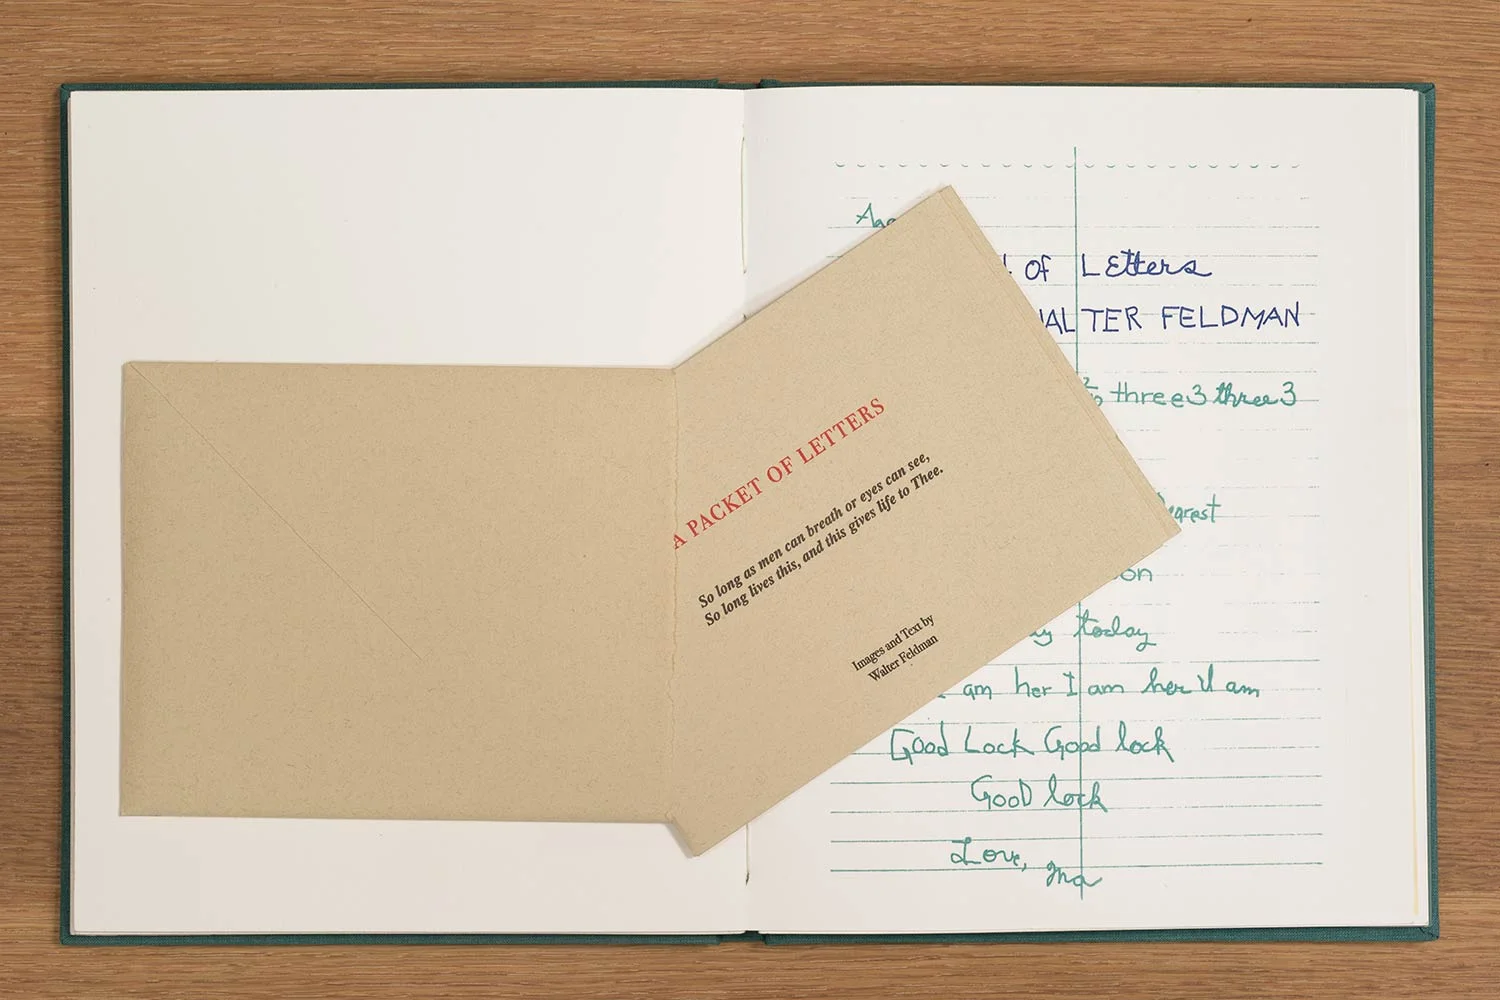 A PACKET OF LETTERS
So long as men can breath or eyes can see,
So long lives this, and this gives life to Thee.
Images and Text by
Walter Feldman
of Letters
WALTER FELDMAN
three3 three3
today
am her I am her I am
Good Lock Good lock
Good lock
Love,